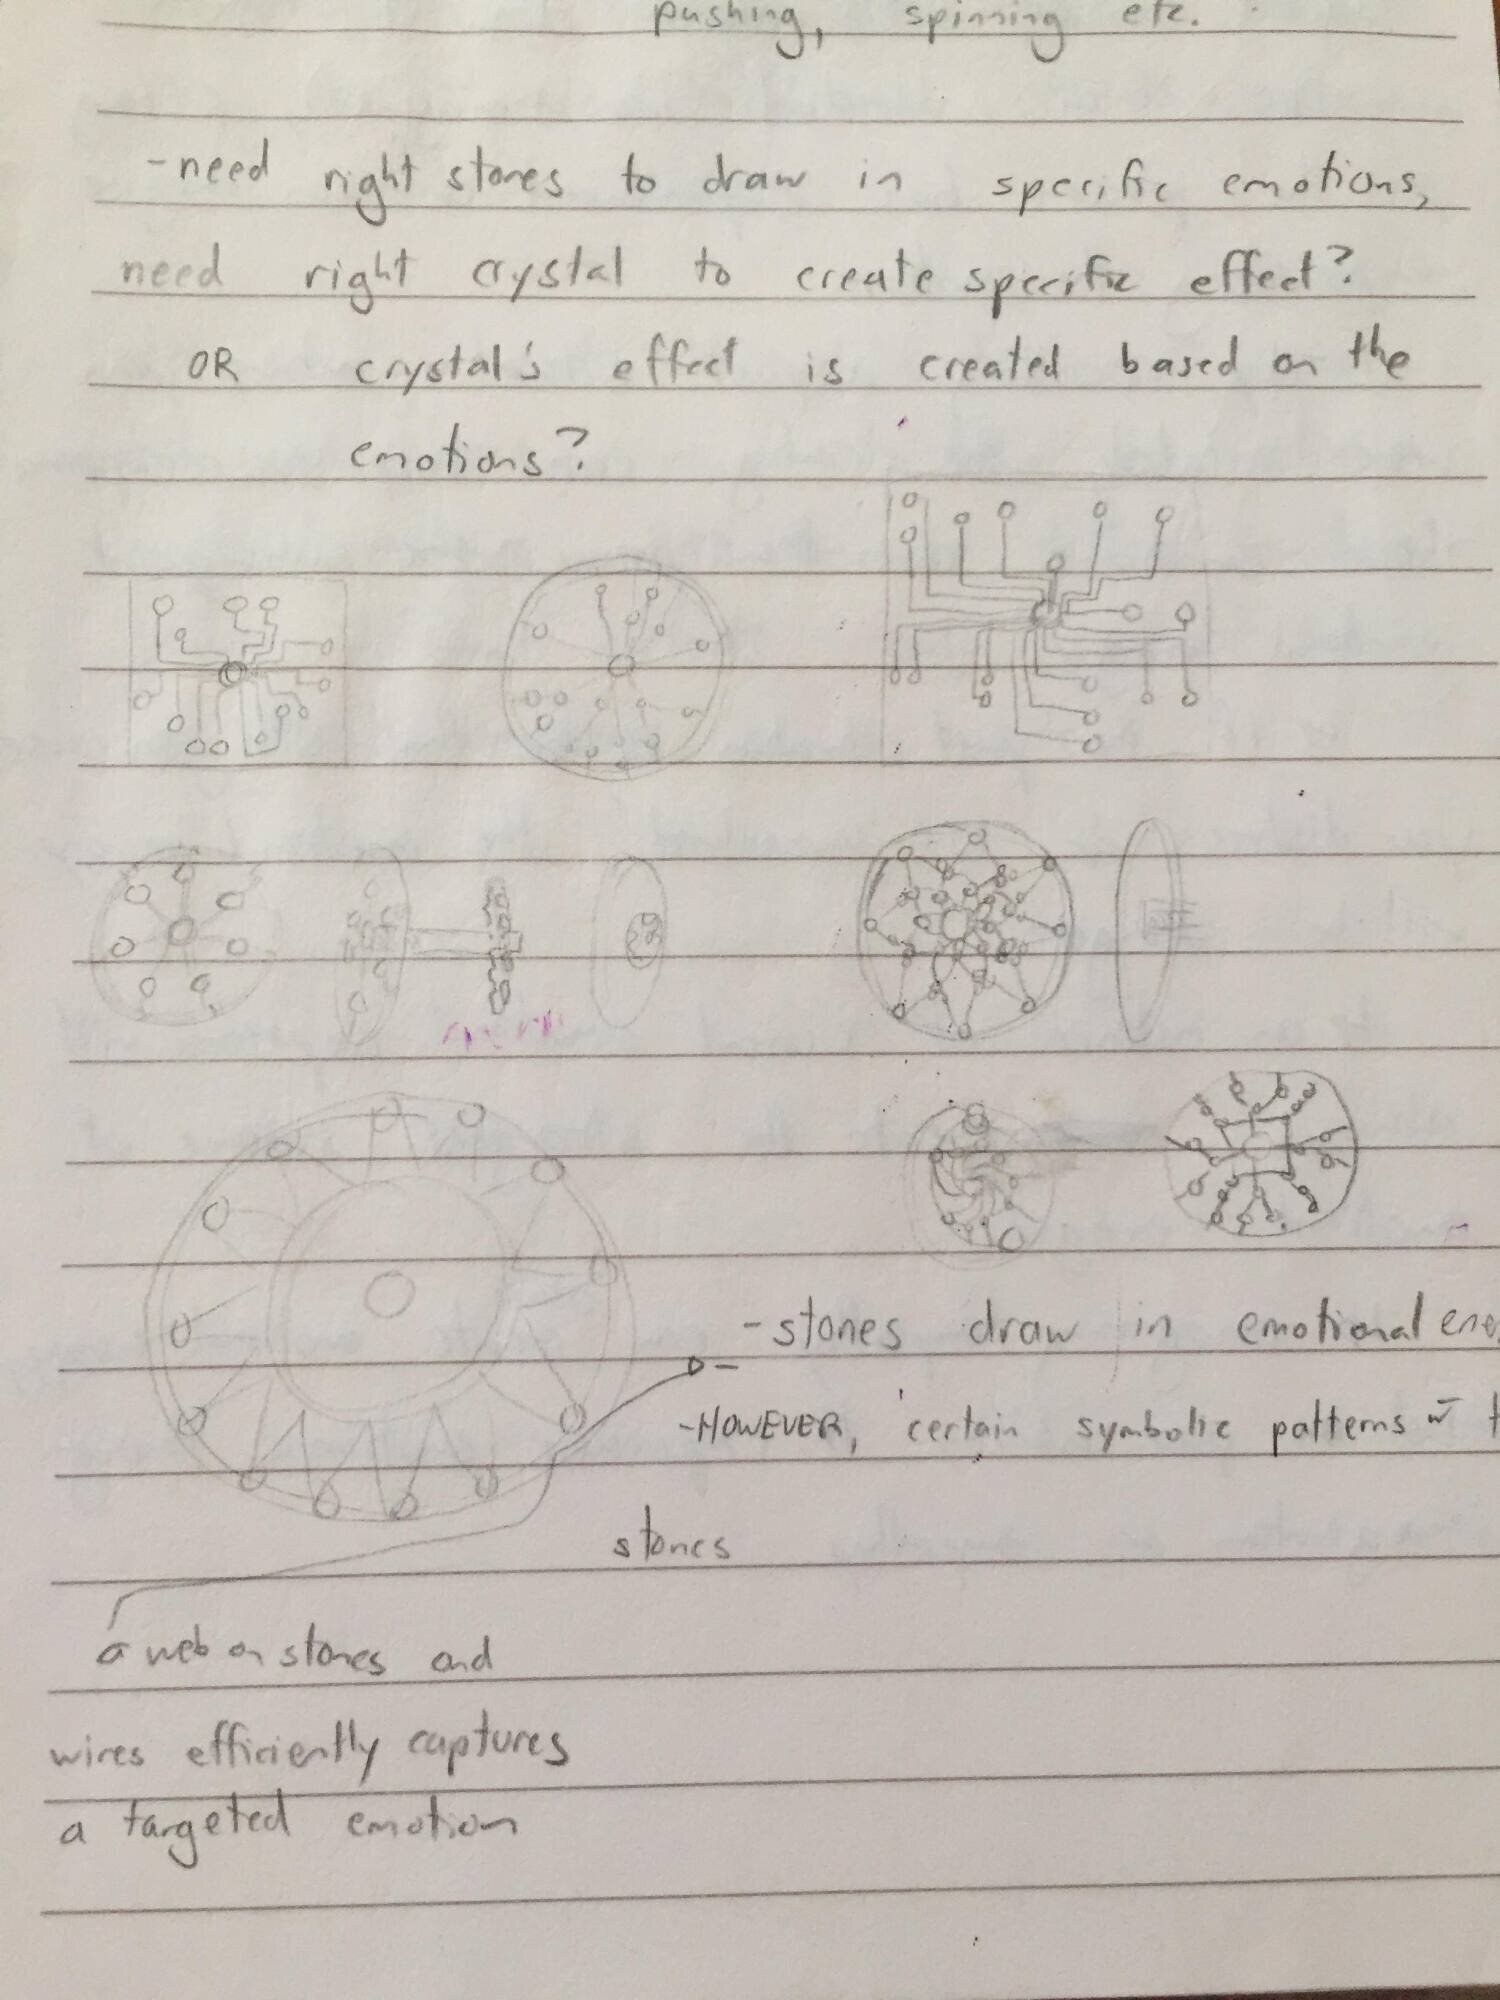 pushing, spinning etc.
-need right stones to draw in specific emotions,
need right crystal to create specific effect?
OR crystal's effect is created based on the
emotions?
-stones draw in emotional
-HOWEVER, certain symbolic patterns w
stones
a web on stones and
wires efficiently captures
a targeted emotion